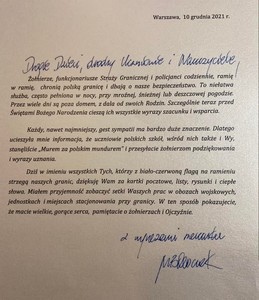 Warszawa, 10 grudnia 2021 r.
Drogie Dzieci, drodzy Uczniowie i Nauczyciele,
Żołnierze, funkcjonariusze Straży Granicznej i policjanci codziennie, ramię
w ramię, chronią polską granicę i dbają o nasze bezpieczeństwo. To niełatwa
służba, często pełniona w nocy, przy mroźnej, śnieżnej lub deszczowej pogodzie.
Przez wiele dni są poza domem, z dala od swoich Rodzin. Szczególnie teraz przed
Świętami Bożego Narodzenia cieszą ich wszystkie wyrazy szacunku i wsparcia.
Każdy, nawet najmniejszy, gest sympatii ma bardzo duże znaczenie. Dlatego
ucieszyła mnie informacja, że uczniowie polskich szkół, również tak wśród nich i Wy,
stanęliście „Murem za polskim mundurem” i przesyłacie żołnierzom podziękowania
i wyrazy uznania.
Dziś w imieniu wszystkich Tych, którzy z biało-czerwoną flagą na ramieniu
strzegą naszych granic, dziękuję Wam za kartki pocztowe, listy, rysunki i ciepłe
słowa. Miałem przyjemność zobaczyć setki Waszych prac w obozach wojskowych,
jednostkach i miejscach stacjonowania przy granicy. W ten sposób pokazujecie,
że macie wielkie, gorące serca, pamiętacie o żołnierzach i Ojczyźnie.
z wyrazami szacunku